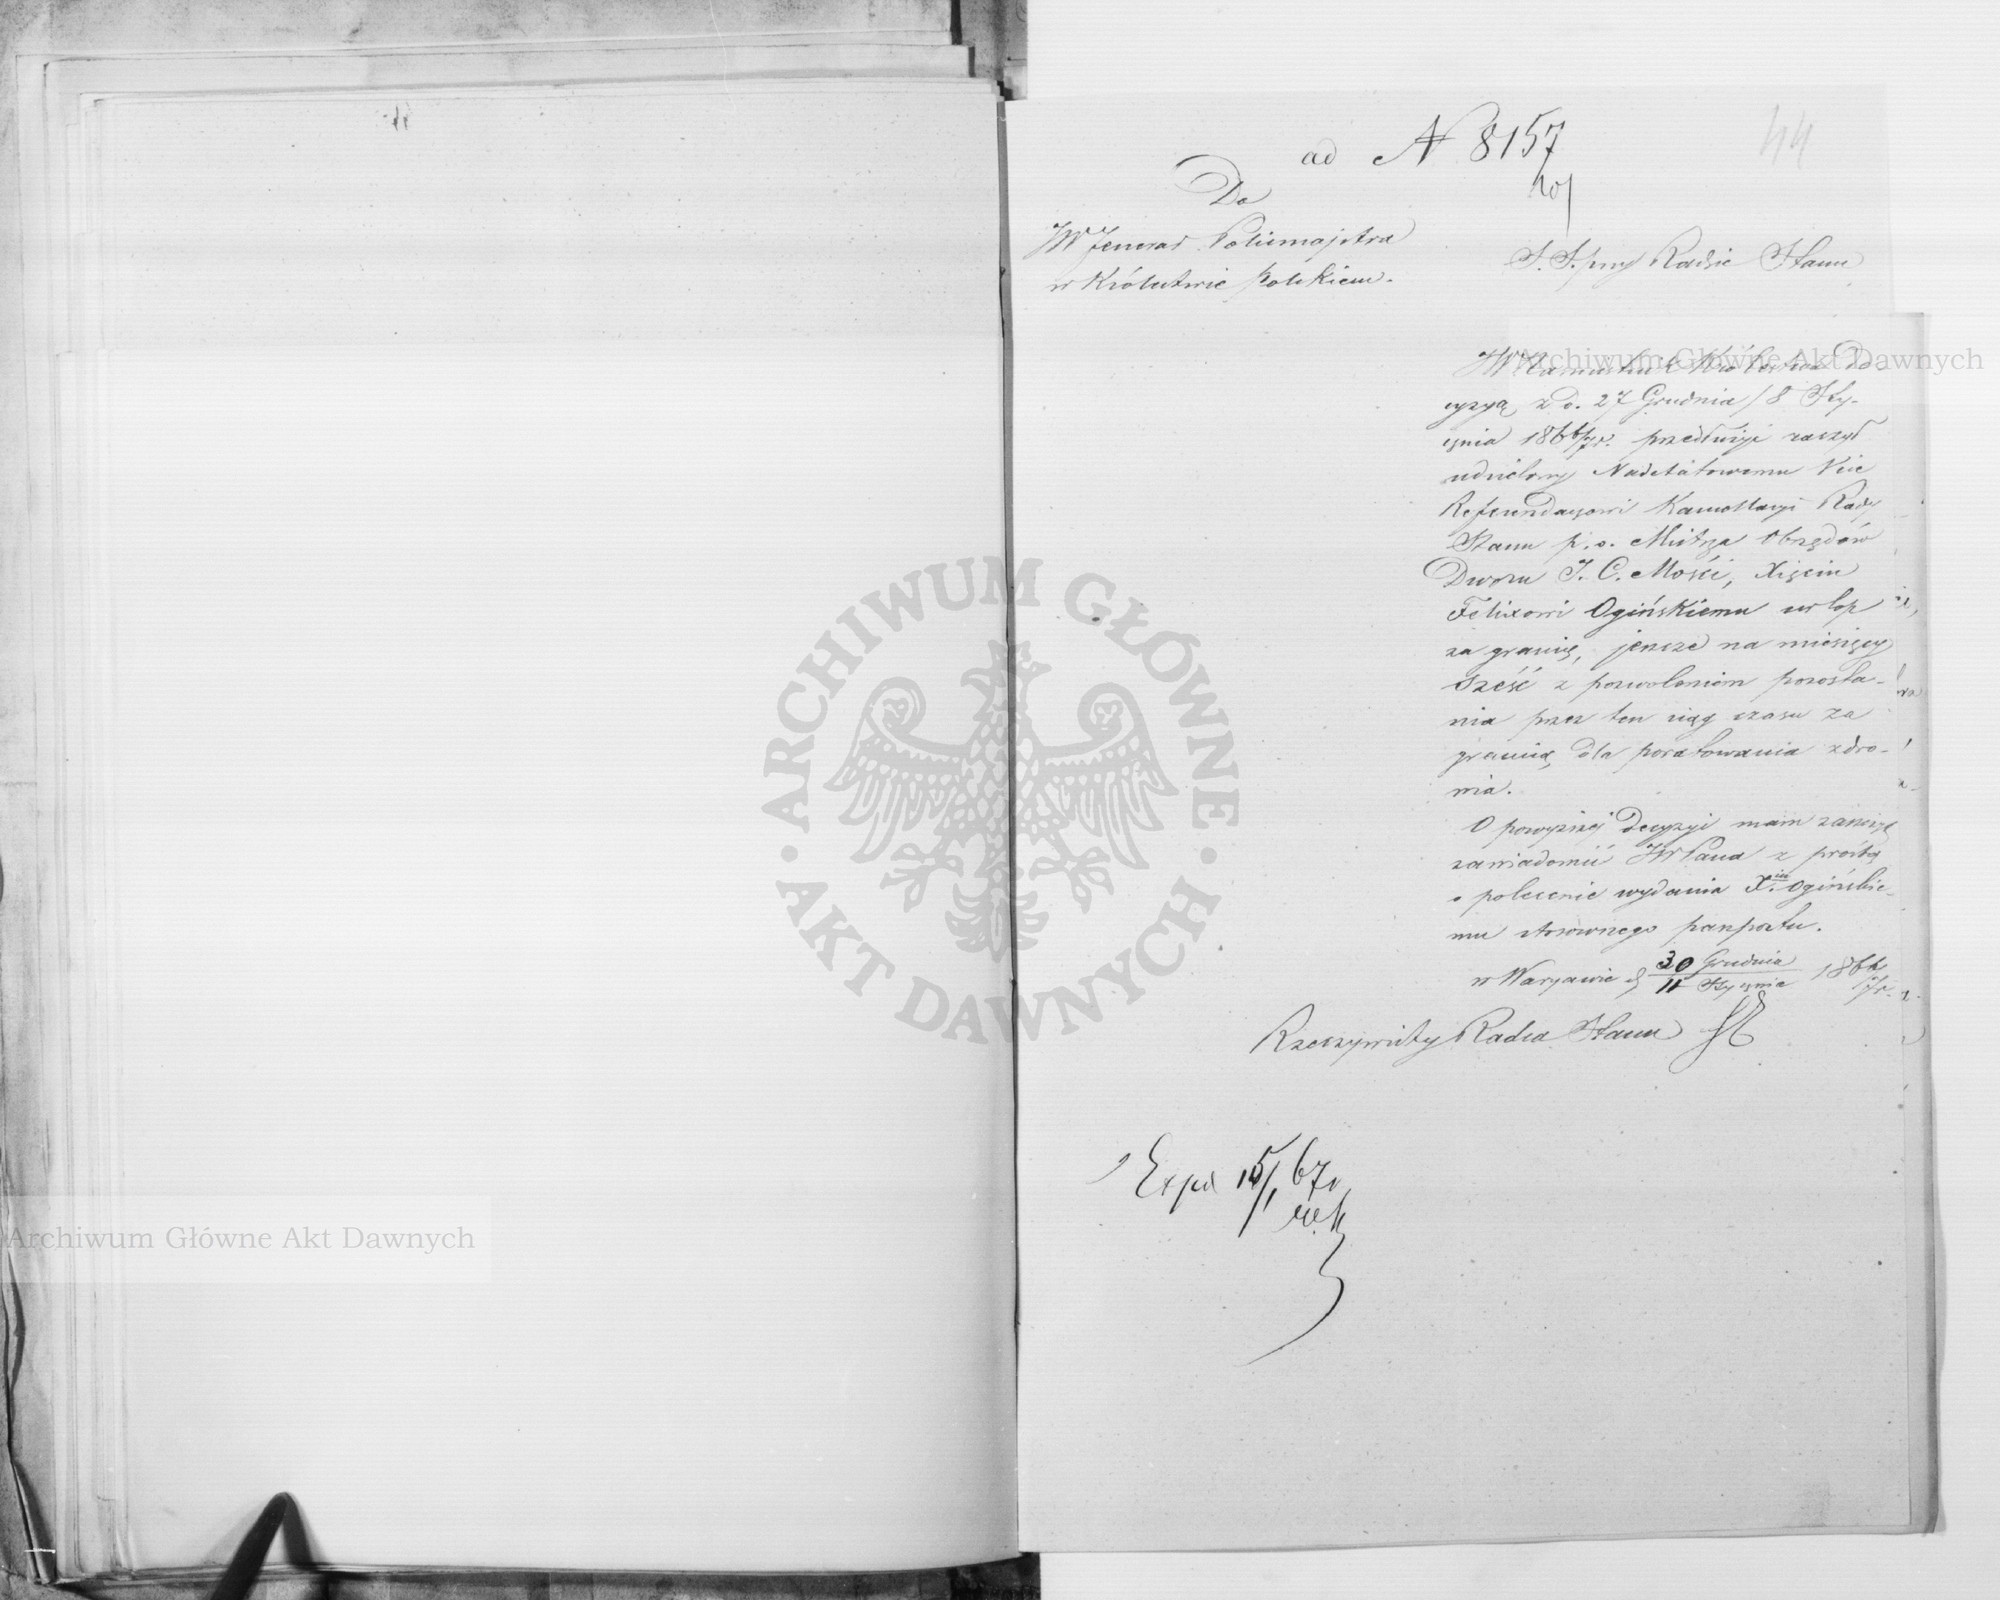 44
ad N 8157
Do
JW Jenerał Policmajstra
w Królestwie Polskiem.
S. S. przy Radzie Stanu
JW Namiestnik Królestwa De-
cyzyą z d. 27 Grudnia / 8 Sty-
cznia 1866/7 r. przedłużyć raczył
udzielony Nadetatowemu Vice
Referendarzowi Kancellaryi Rady
Stanu p. o. Mistrza Obrzędów
Dworu J. C. Mości, Xięciu
Felixowi Ogińskiemu urlop
za granicę, jeszcze na miesięcy
sześć z pozwoleniem pozosta-
nia przez ten ciąg czasu za
granicą dla poratowania zdro-
wia.
O powyższej Decyzyi mam zaszczyt
zawiadomić JW Pana z prośbą
o polecenie wydania X.ciu Ogińskie-
mu stosownego paszportu.
w Warszawie d 30 Grudnia / 11 Stycznia 1866/7 r.
Rzeczywisty Radca Stanu
Exped 15/1 67 r
Archiwum Główne Akt Dawnych
Archiwum Główne Akt Dawnych
ARCHIWUM GŁÓWNE
AKT DAWNYCH